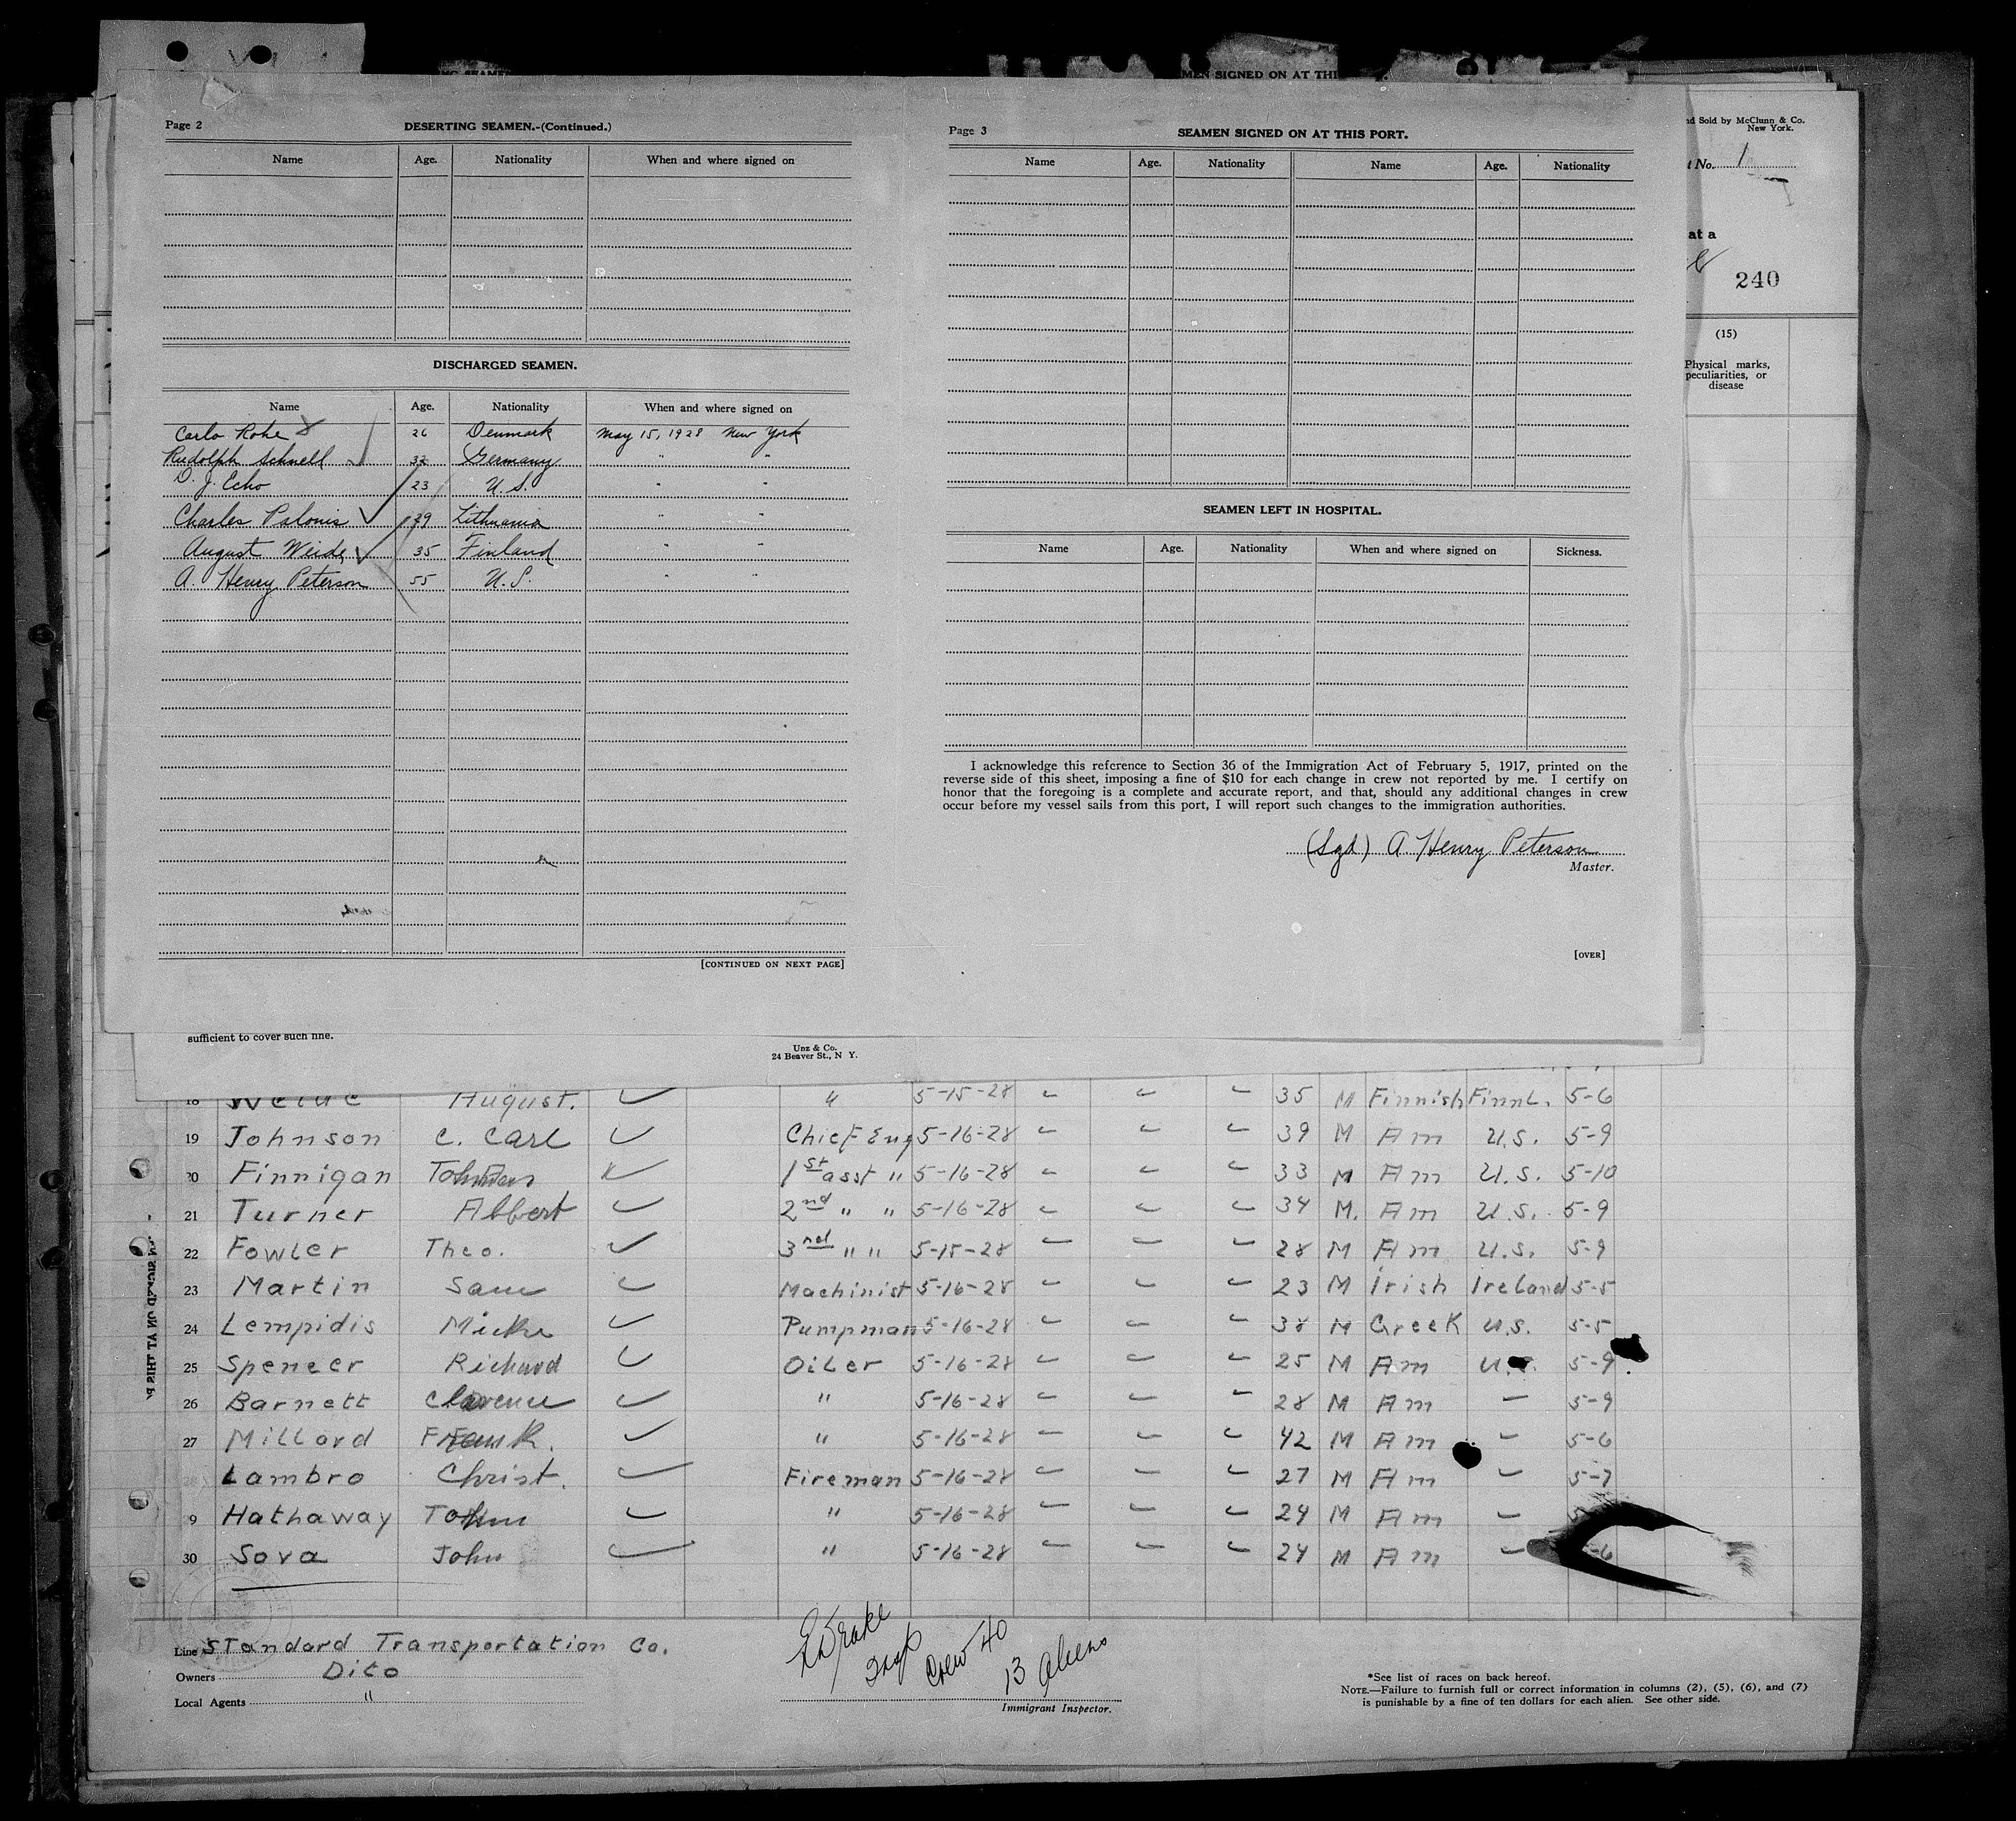 MEN SIGNED ON AT THI
Page 2 DESERTING SEAMEN.-(Continued.)
Name Age. Nationality When and where signed on
DISCHARGED SEAMEN.
Name Age. Nationality When and where signed on
Carlo Rohe 26 Denmark May 15, 1928 New York
Rudolph Schnell 32 Germany " "
D. J. Echo 23 U.S. " "
Charles Palonis 29 Lithuania " "
August Weide 35 Finland " "
A. Henry Peterson 55 U.S. " "
[CONTINUED ON NEXT PAGE]
Page 3 SEAMEN SIGNED ON AT THIS PORT.
Name Age. Nationality Name Age. Nationality
SEAMEN LEFT IN HOSPITAL.
Name Age. Nationality When and where signed on Sickness.
I acknowledge this reference to Section 36 of the Immigration Act of February 5, 1917, printed on the
reverse side of this sheet, imposing a fine of $10 for each change in crew not reported by me. I certify on
honor that the foregoing is a complete and accurate report, and that, should any additional changes in crew
occur before my vessel sails from this port, I will report such changes to the immigration authorities.
(Sgd) A Henry Peterson
Master.
[OVER]
nd Sold by McClunn & Co.
New York.
t No. 1
at a
240
(15)
Physical marks,
peculiarities, or
disease
sufficient to cover such fine.
Unz & Co.
24 Beaver St., N Y.
18 Weide August. " 5-15-28 35 M Finnish Finnl. 5-6
19 Johnson C. Carl Chief Eng 5-16-28 39 M Am U.S. 5-9
20 Finnigan 1st asst " 5-16-28 33 M Am U.S. 5-10
21 Turner Albert 2nd " " 5-16-28 34 M. Am U.S. 5-9
22 Fowler Theo. 3rd " " 5-15-28 28 M Am U.S. 5-9
23 Martin Sam Machinist 5-16-28 23 M Irish Ireland 5-5
24 Lempidis Mike Pumpman 5-16-28 38 M Greek U.S. 5-5
25 Spencer Richard Oiler 5-16-28 25 M Am U.S. 5-9
26 Barnett Clarence " 5-16-28 28 M Am - 5-9
27 Millard Frank. " 5-16-28 42 M Am - 5-6
Lambro Christ. Fireman 5-16-28 27 M Am - 5-7
9 Hathaway John " 5-16-28 24 M Am -
30 Sova John " 5-16-28 24 M Am - -6
Line Standard Transportation Co.
Owners Dito
Local Agents "
Drake
Insp
Crew 40
13 Aliens
Immigrant Inspector.
*See list of races on back hereof.
NOTE.—Failure to furnish full or correct information in columns (2), (5), (6), and (7)
is punishable by a fine of ten dollars for each alien. See other side.